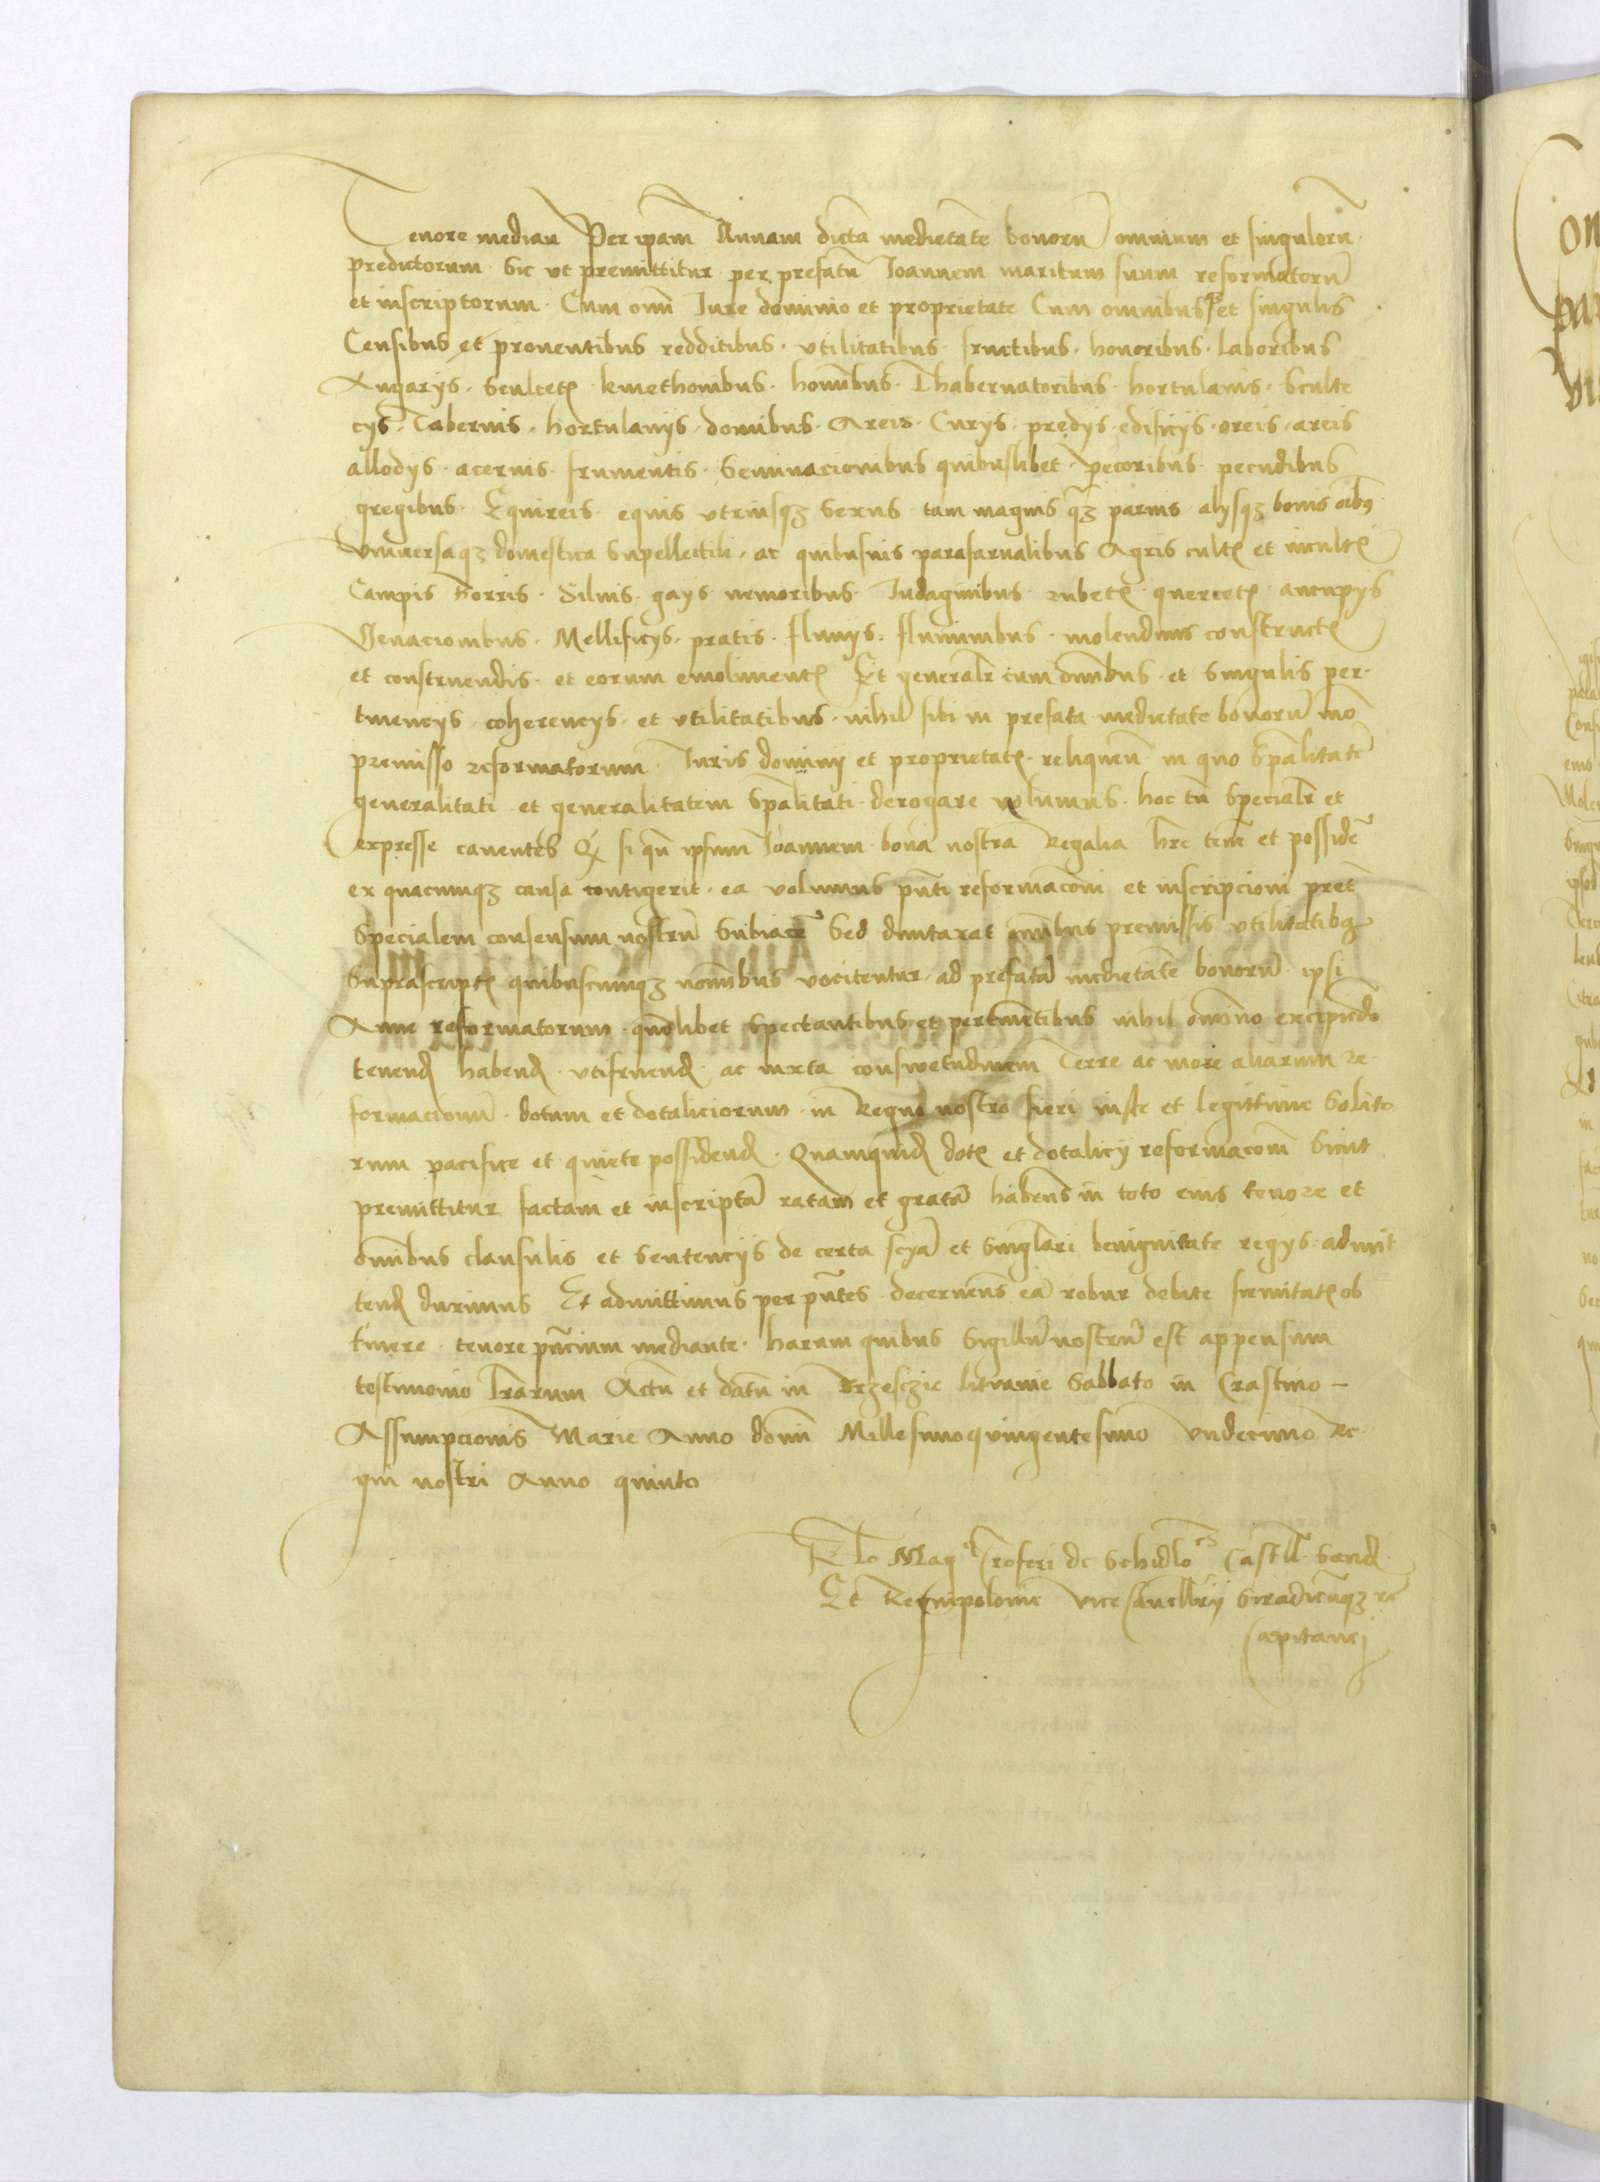 Tenore median Per ipam Annam dicta medietate bonoru omnium et singuloru
predictorum Sic ut premittitur per prefatu Joannem maritum suum reformatoru
et inscriptorum Cum omi Jure dominio et proprietate Cum omnibus et singulis
Censibus et proventibus redditibus utilitatibus fructibus honoribus laboribus
Angarys kmethonibus homibus Thabernatoribus hortulanis Sculte
cys Tabernis hortulanijs domibus Areis Curijs predijs edificijs oreis areis
allodijs acervis frumentis Seminacionibus quibuslibet pecoribus pecudibus
gregibus Equireis equis utriusqz sexus tam magnis qz parvis alysqz bonis oibus
Universaqz domestica Supellectili ac quibusvis parafarnalibus Agris cult et incult
Campis Borris Silvis gays nemoribus Indaginibus rubet quercet aucupys
Venacionibus Mellificys pratis fluvijs fluminibus molendinis construct
et construendis et eorum emoliment Et generalr cum omibus et Singulis per
tinencijs coherencijs et utilitatibus nihil sibi in prefata medietate bonoru mo
premisso reformatorum Juris dominij et proprietat reliquen in quo Spalitate
generalitati et generalitatem Spalitati derogare volumus hoc tn Specialr et
expresse caventes si qn ipsum Joannem bona nostra Regalia hre tene et posside
ex quacunqz causa contigerit ea volumus pnti reformacioni et inscripcioni pret
Specialem consensum nostru Subiace Sed duntaxat omibus premissis utilitatibz
Suprascript quibuscunqz nomibus vocitentur ad prefata medietate bonoru ipsi
Anne reformatorum quolibet Spectantibus et pertinentibus nihil omino excipiendo
tenend habend utifruend ac iuxta consuetudinem Terre ac more aliarum re
formacionu dotum et dotaliciorum in Regno nostro fieri iuste et legittime Solito
rum pacifice et quiete possidend Quamquid dot et dotalicij reformacom Sicut
premittitur factam et inscripta ratam et grata habens in toto eius tenore et
omibus clausulis et Sentencijs de certa scya et Singlari benignitate regys admit
tend duximus Et admittimus per pntes decernens ea robur debite firmitat ob
tinere tenore pncium mediante harum quibus Sigillu nostru est appensum
testimonio lrarum Actu et datu in Brzesczie lituanie Sabbato in Crastino
Assumpcionis Marie Anno domi Millesimoquingentesimo Undecimo Re
gni nostri Anno quinto
Rlo Mag Crofori de Schidlo Castll Sand
Et Regnipolonie vice Cancllrij Siradienqz
Capitanej